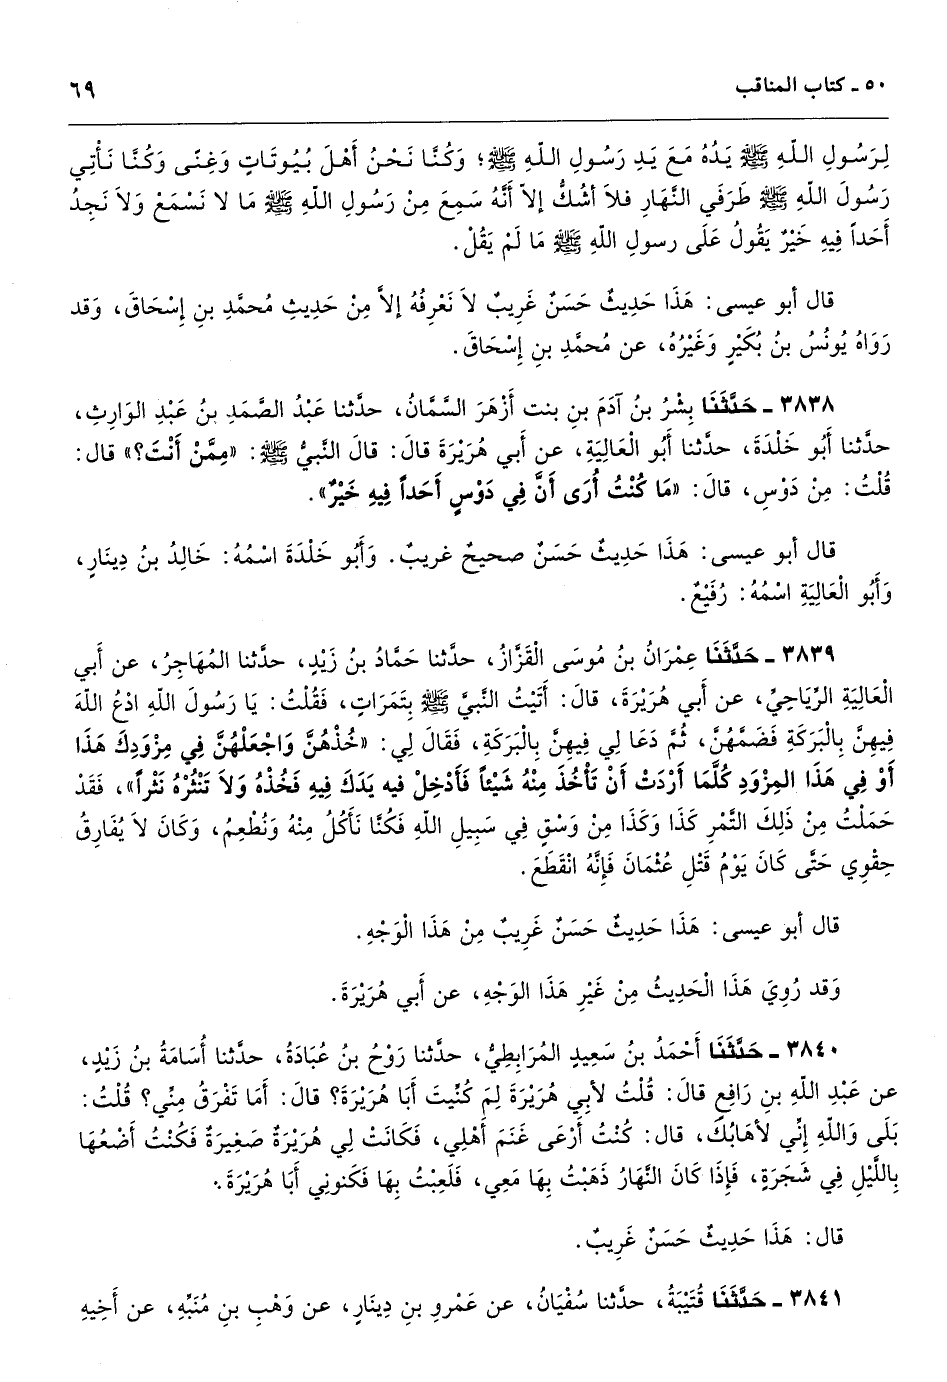 ٥٠ ـ كتاب المناقب ٦٩
لِرَسُولِ اللّهِ ﷺ يَدُهُ مَعَ يَدِ رَسُولِ اللّهِ ﷺ؛ وَكُنَّا نَحْنُ أَهْلَ بُيُوتَاتٍ وَغِنًى وَكُنَّا نَأْتِي
رَسُولَ اللّهِ ﷺ طَرَفَي النَّهَارِ فلاَ أشُكُّ إلاّ أنَّهُ سَمِعَ مِنْ رَسُولِ اللّهِ ﷺ مَا لا نَسْمَعْ وَلاَ نَجِدُ
أَحَداً فِيهِ خَيْرٌ يَقُولُ عَلَى رسولِ اللّهِ ﷺ مَا لَمْ يَقُلْ.
قال أبو عيسى: هَذَا حَدِيثٌ حَسَنٌ غَرِيبٌ لاَ نَعْرِفُهُ إلاَّ مِنْ حَدِيثِ مُحمَّدِ بنِ إِسْحَاقَ، وَقد
رَوَاهُ يُونُسُ بنُ بُكَيْرٍ وَغَيْرُهُ، عن مُحمَّدِ بنِ إِسْحَاقَ.
٣٨٣٨ ـ حَدَّثَنَا بِشْرُ بنُ آدَمَ بنِ بنت أزْهَرَ السَّمَّانُ، حدَّثنا عَبْدُ الصَّمَدِ بنُ عَبْدِ الوَارِثِ،
حدَّثنا أَبُو خَلْدَةَ، حدَّثنا أبُو الْعَالِيَةِ، عن أبي هُرَيْرَةَ قالَ: قالَ النَّبيُّ ﷺ: «مِمَّنْ أَنْتَ؟» قال:
قُلْتُ: مِنْ دَوْسٍ، قالَ: «مَا كُنْتُ أُرَى أَنَّ فِي دَوْسٍ أَحَداً فِيهِ خَيْرٌ».
قال أبو عيسى: هَذَا حَدِيثٌ حَسَنٌ صحيحٌ غريبٌ. وَأَبُو خَلْدَةَ اسْمُهُ: خَالِدُ بنُ دِينَارٍ،
وَأَبُو الْعَالِيَةِ اسْمُهُ: رُفَيْعٌ.
٣٨٣٩ ـ حَدَّثَنَا عِمْرَانُ بنُ مُوسَى الْقَزَّازُ، حدَّثنا حَمَّادُ بنُ زَيْدٍ، حدَّثنا المُهَاجِرُ، عن أبي
الْعَالِيَةِ الرِّيَاحِيِّ، عن أبي هُرَيْرَةَ، قالَ: أَتَيْتُ النَّبيَّ ﷺ بِتَمَرَاتٍ، فَقُلْتُ: يا رَسُولَ اللّهِ ادْعُ اللّهَ
فِيهِنَّ بِالْبَرَكَةِ فَضَمَّهُنَّ، ثُمَّ دَعَا لِي فِيهِنَّ بِالْبَرَكَةِ، فَقَالَ لِي: «خُذْهُنَّ وَاجْعَلْهُنَّ فِي مِزْوَدِكَ هَذَا
أَوْ فِي هَذَا المِزْوَدِ كُلَّمَا أَرَدْتَ أنْ تَأْخُذَ مِنْهُ شَيْئاً فَأَدْخِلْ فيه يَدَكَ فِيهِ فَخُذْهُ وَلاَ تَنْثُرْهُ نَثْراً»، فَقَدْ
حَمَلْتُ مِنْ ذَلِكَ التَّمْرِ كَذَا وَكَذَا مِنْ وَسْقٍ فِي سَبِيلِ اللّهِ فَكُنَّا نَأْكُلُ مِنْهُ وَنُطْعِمُ، وَكَانَ لاَ يُفَارِقُ
حِقْوِي حَتَّى كَانَ يَوْمُ قَتْلِ عُثْمَانَ فَإِنَّهُ انْقَطَعَ.
قال أبو عيسى: هَذَا حَدِيثٌ حَسَنٌ غَرِيبٌ مِنْ هَذَا الْوَجْهِ.
وَقد رُوِيَ هَذَا الْحَدِيثُ مِنْ غَيْرِ هَذَا الوَجْهِ، عن أبي هُرَيْرَةَ.
٣٨٤٠ ـ حَدَّثَنَا أَحْمَدُ بنُ سَعِيدٍ المُرَابِطِيُّ، حدَّثنا رَوْحُ بنُ عُبَادَةُ، حدَّثنا أُسَامَةُ بنُ زَيْدٍ،
عن عَبْدِ اللّهِ بنِ رَافِعٍ قالَ: قُلْتُ لأبِي هُرَيْرَةَ لِمَ كُنِّيتَ أبَا هُرَيْرَةَ؟ قالَ: أمَا تَفْرَقُ مِنِّي؟ قُلْتُ:
بَلَى وَاللّهِ إِنِّي لأهَابُكَ، قال: كُنْتُ أرْعَى غَنَمَ أهْلِي، فَكَانَتْ لِي هُرَيْرَةٌ صَغِيرَةٌ فَكُنْتُ أضَعُهَا
بِاللَّيْلِ فِي شَجَرَةٍ، فَإِذَا كَانَ النَّهَارُ ذَهَبْتُ بِهَا مَعِي، فَلَعِبْتُ بِهَا فَكَنونِي أبَا هُرَيْرَةَ.
قال: هَذَا حَدِيثٌ حَسَنٌ غَرِيبٌ.
٣٨٤١ ـ حَدَّثَنَا قُتَيْبَةُ، حدَّثنا سُفْيَانُ، عن عَمْرِو بنِ دِينَارٍ، عن وَهْبِ بنِ مُنَبِّهِ، عن أخِيهِ